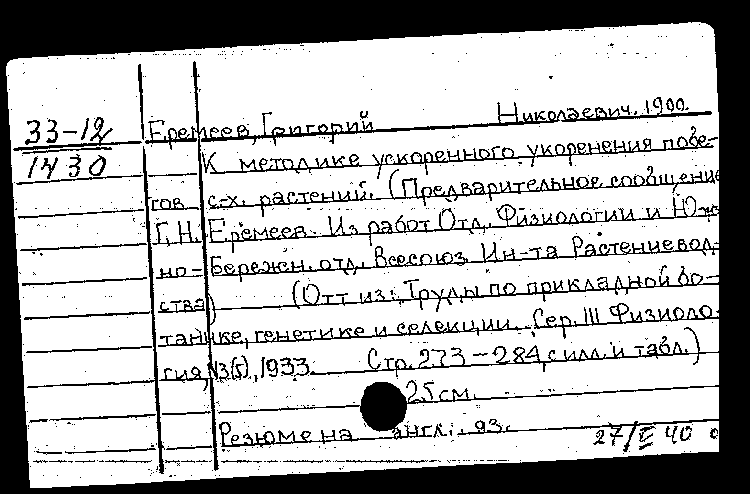 33-12
1430
Еремеев, Григорий Николаевич. 1900.
К методике ускоренного укоренения побе-
гов с-х. растений. (Предварительное сообщение
Г. Н. Еремеев. Из работ Отд. Физиологии и Юж-
но-Бережн. отд. Всесоюз. Ин-та Растениевод-
ства) (Отт из: Труды по прикладной бо-
танике, генетике и селекции. Сер. III Физиоло-
гия, №3(5), 1933. Стр. 273-284, с илл. и табл.)
25 см.
Резюме на англ. яз.
27/II 40